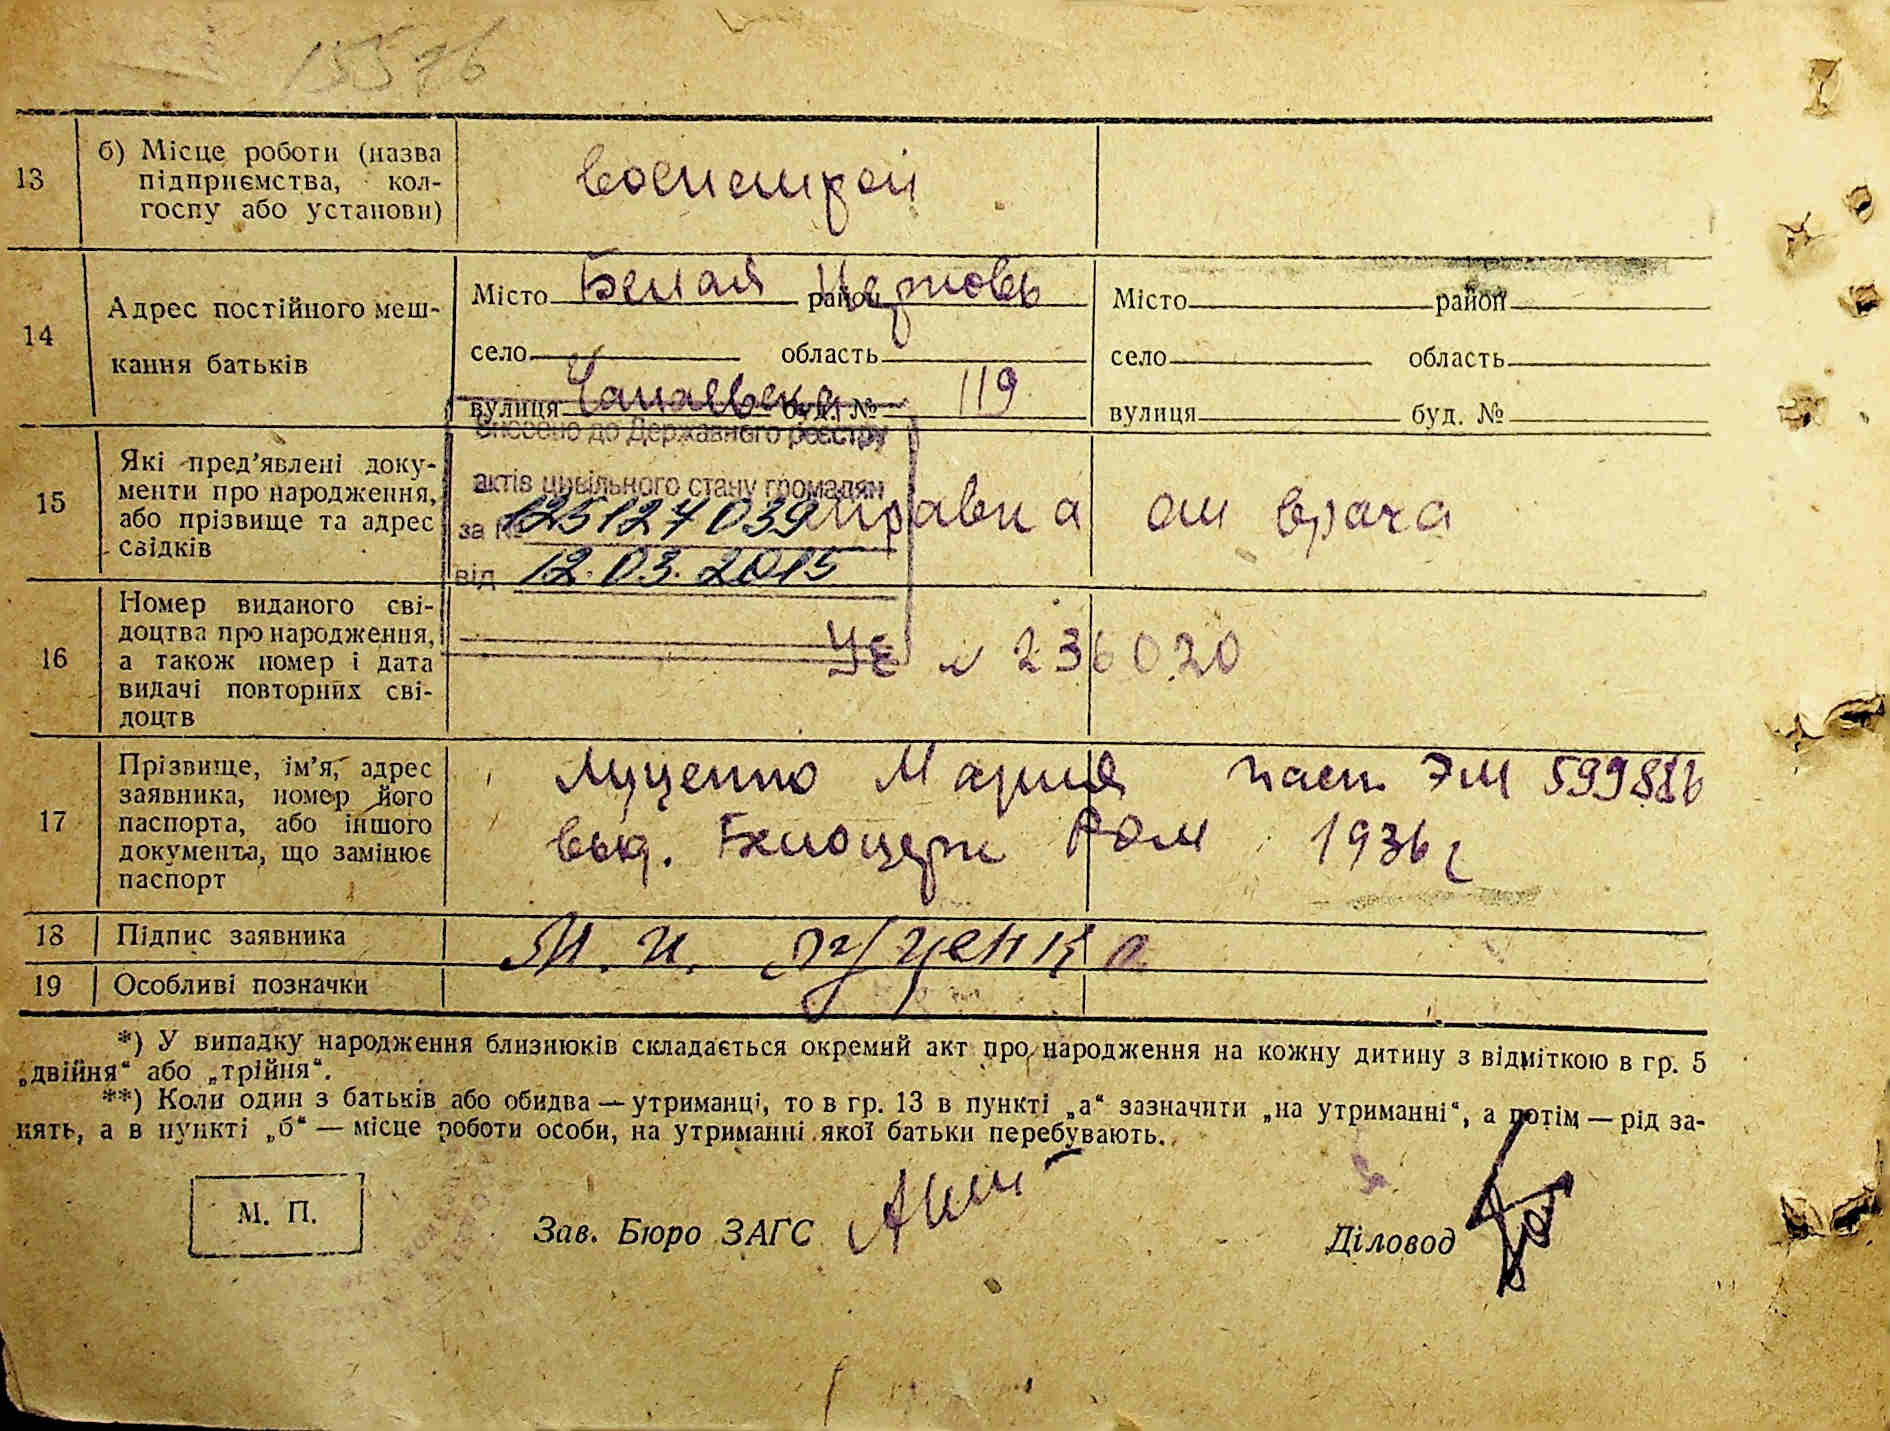 15576
13 б) Місце роботи (назва підприємства, кол-госпу або установи) военстрой
14 Адрес постійного меш-кання батьків
Місто Белая район Церковь Місто район
село область село область
вулиця Чапаевская буд. № 119 вулиця буд. №
Внесено до Державного реєстру
актів цивільного стану громадян
за № 125127039
від 12.03.2015
15 Які пред'явлені доку-менти про народження, або прізвище та адрес свідків справка от врача
16 Номер виданого сві-доцтва про народження, а також номер і дата видачі повторних сві-доцтв УЕ № 236020
17 Прізвище, ім'я, адрес заявника, номер його паспорта, або іншого документа, що замінює паспорт
Луценко Мария пасп. ЭМ 599886
выд. Белоцерк РОМ 1936 г
18 Підпис заявника М. И. Луценко
19 Особливі позначки
*) У випадку народження близнюків складається окремий акт про народження на кожну дитину з відміткою в гр. 5
„двійня“ або „трійня“.
**) Коли один з батьків або обидва — утриманці, то в гр. 13 в пункті „а“ зазначити „на утриманні“, а потім — рід за-
нять, а в пункті „б“ — місце роботи особи, на утриманні якої батьки перебувають.
М. П.
Зав. Бюро ЗАГС
Діловод